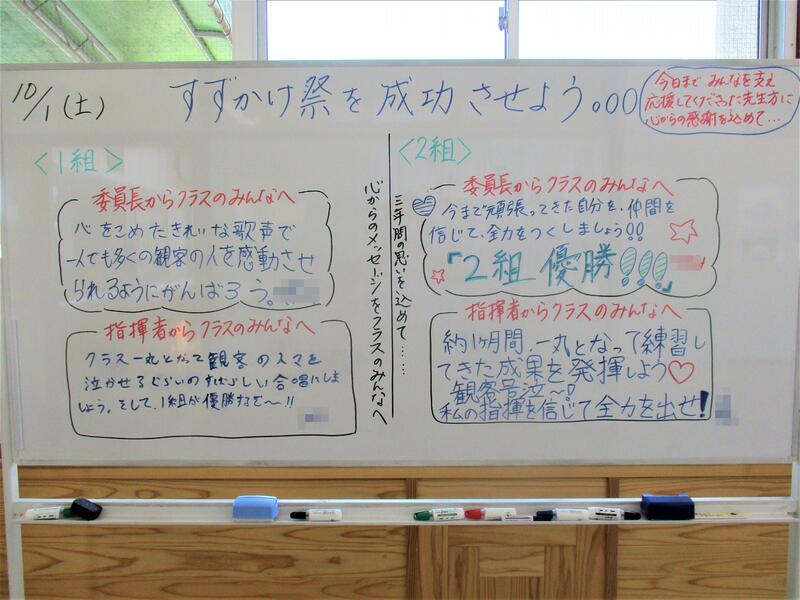 10/1(土)
すずかけ祭を成功させよう。○○
今日まで みんなを支え
応援してくださった先生方に
心からの感謝を込めて…
<1組>
委員長からクラスのみんなへ
心をこめたきれいな歌声で
一人でも多くの観客の人を感動させ
られるようにがんばろう。
指揮者からクラスのみんなへ
クラス一丸となって観客の人々を
泣かせるぐらいのすばらしい合唱にしま
しょう。そして、1組が優勝するぞ〜!!
三年間の思いを込めて……
心からのメッセージをクラスのみんなへ
<2組>
委員長からクラスのみんなへ
今まで頑張ってきた自分を、仲間を
信じて、全力をつくしましょう!!
「2組 優勝!!!」
指揮者からクラスのみんなへ
約1ヶ月間、一丸となって練習し
てきた成果を発揮しよう♡
観客号泣〜!
私の指揮を信じて全力を出せ!